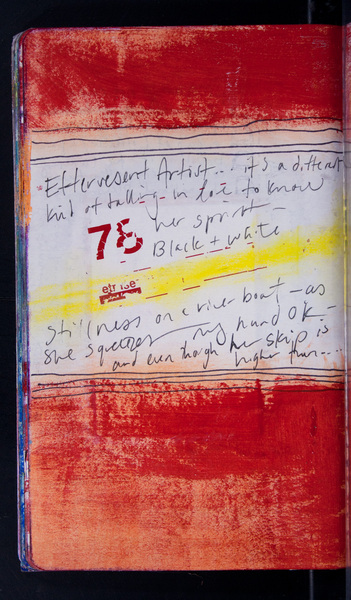 Effervesent Artist... it's a different
kind of falling in love to know
her spirit –
75
Black + white
Stillness on a river boat – as
she squeezes my hand OK –
and even though her skip is
higher than...